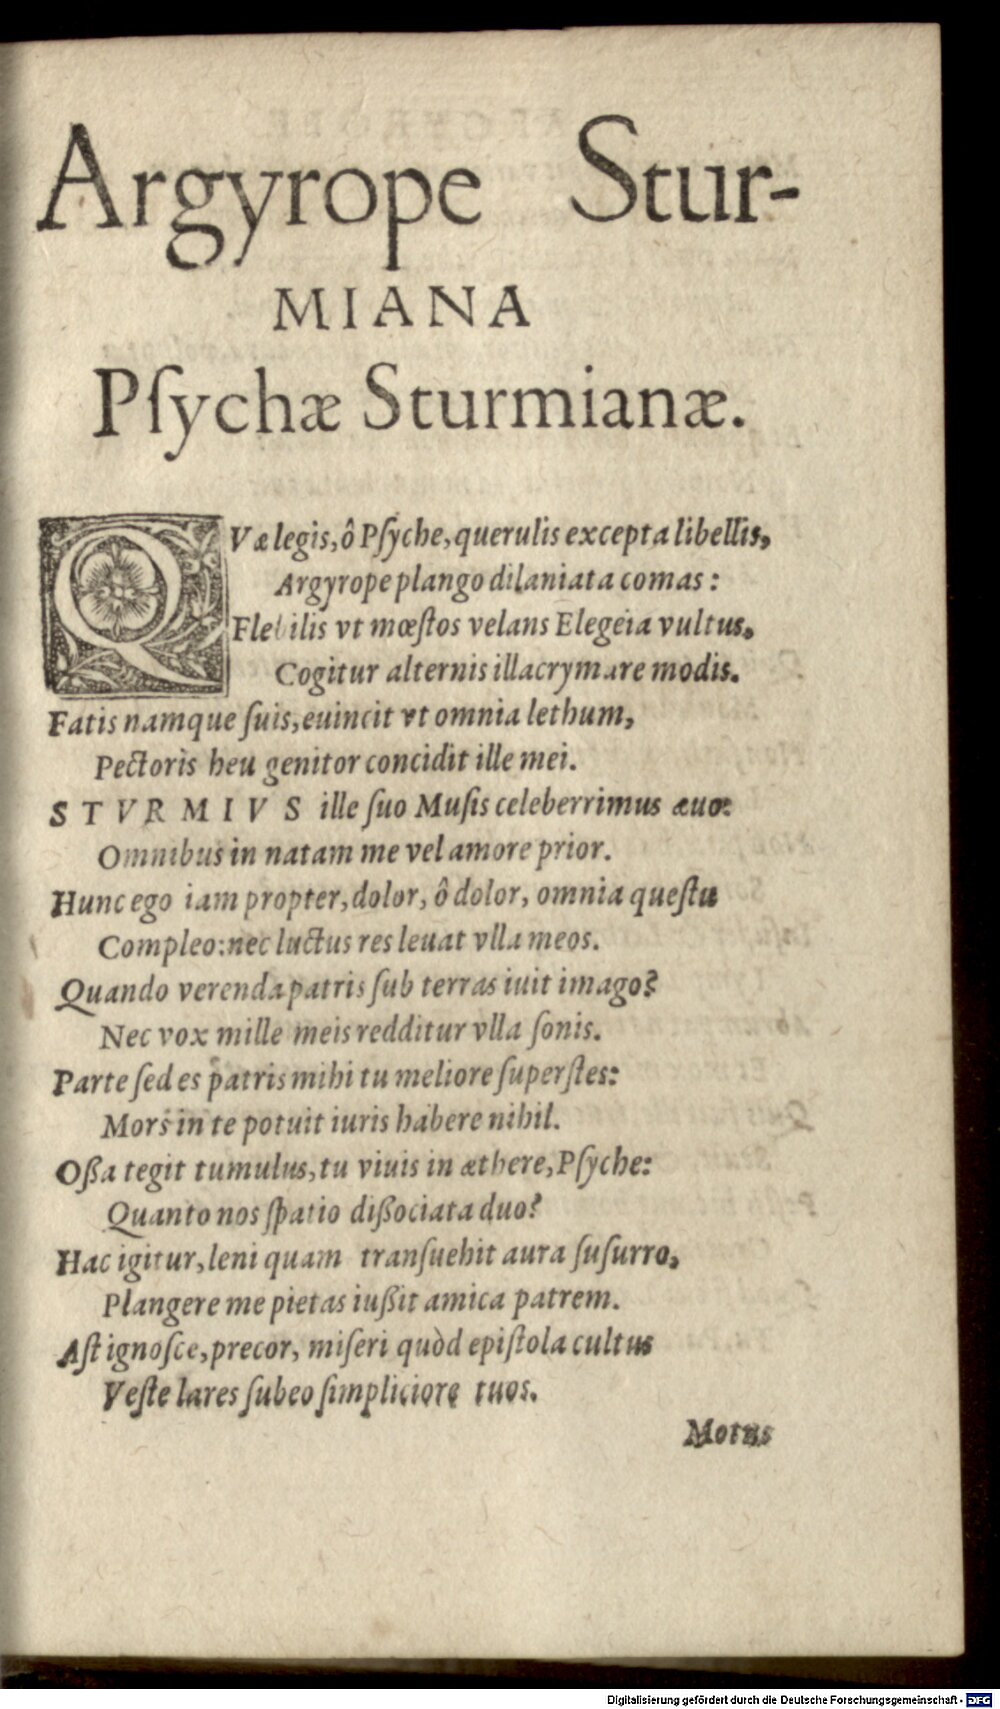 Argyrope Stur-
MIANA
Pſychæ Sturmianæ.
QVæ legis, ô Pſyche, querulis excepta libellis,
Argyrope plango dilaniata comas:
Flebilis vt mœſtos velans Elegeia vultus,
Cogitur alternis illacrymare modis.
Fatis namque ſuis, euincit vt omnia lethum,
Pectoris heu genitor concidit ille mei.
STVRMIVS ille ſuo Muſis celeberrimus æuo:
Omnibus in natam me vel amore prior.
Hunc ego iam propter, dolor, ô dolor, omnia queſtu
Compleo: nec luctus res leuat vlla meos.
Quando verenda patris ſub terras iuit imago?
Nec vox mille meis redditur vlla ſonis.
Parte ſed es patris mihi tu meliore ſuperſtes:
Mors in te potuit iuris habere nihil.
Oßa tegit tumulus, tu viuis in æthere, Pſyche:
Quanto nos ſpatio dißociata duo?
Hac igitur, leni quam tranſuehit aura ſuſurro,
Plangere me pietas iußit amica patrem.
Aſt ignoſce, precor, miſeri quòd epiſtola cultus
Veſte lares ſubeo ſimpliciore tuos.
Motus
Digitalisierung gefördert durch die Deutsche Forschungsgemeinschaft - DFG